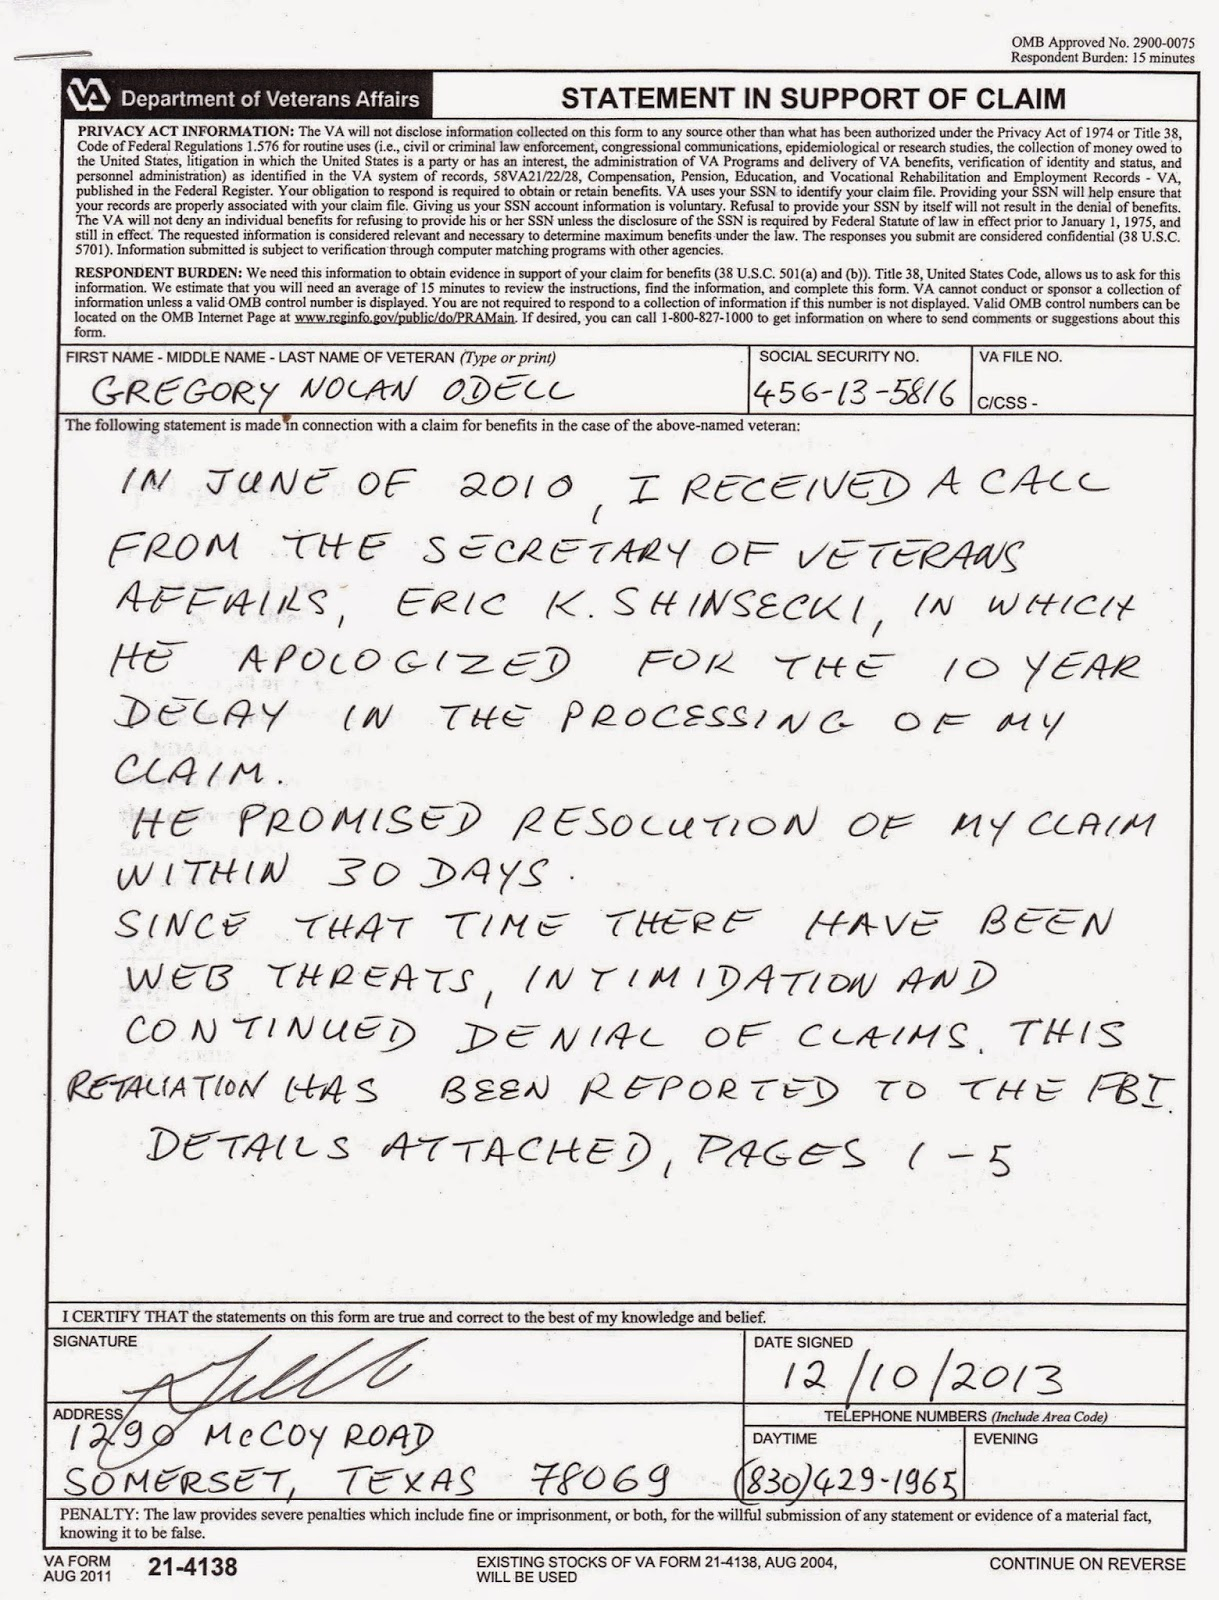 OMB Approved No. 2900-0075
Respondent Burden: 15 minutes
VA Department of Veterans Affairs
STATEMENT IN SUPPORT OF CLAIM
PRIVACY ACT INFORMATION: The VA will not disclose information collected on this form to any source other than what has been authorized under the Privacy Act of 1974 or Title 38,
Code of Federal Regulations 1.576 for routine uses (i.e., civil or criminal law enforcement, congressional communications, epidemiological or research studies, the collection of money owed to
the United States, litigation in which the United States is a party or has an interest, the administration of VA Programs and delivery of VA benefits, verification of identity and status, and
personnel administration) as identified in the VA system of records, 58VA21/22/28, Compensation, Pension, Education, and Vocational Rehabilitation and Employment Records - VA,
published in the Federal Register. Your obligation to respond is required to obtain or retain benefits. VA uses your SSN to identify your claim file. Providing your SSN will help ensure that
your records are properly associated with your claim file. Giving us your SSN account information is voluntary. Refusal to provide your SSN by itself will not result in the denial of benefits.
The VA will not deny an individual benefits for refusing to provide his or her SSN unless the disclosure of the SSN is required by Federal Statute of law in effect prior to January 1, 1975, and
still in effect. The requested information is considered relevant and necessary to determine maximum benefits under the law. The responses you submit are considered confidential (38 U.S.C.
5701). Information submitted is subject to verification through computer matching programs with other agencies.
RESPONDENT BURDEN: We need this information to obtain evidence in support of your claim for benefits (38 U.S.C. 501(a) and (b)). Title 38, United States Code, allows us to ask for this
information. We estimate that you will need an average of 15 minutes to review the instructions, find the information, and complete this form. VA cannot conduct or sponsor a collection of
information unless a valid OMB control number is displayed. You are not required to respond to a collection of information if this number is not displayed. Valid OMB control numbers can be
located on the OMB Internet Page at www.reginfo.gov/public/do/PRAMain. If desired, you can call 1-800-827-1000 to get information on where to send comments or suggestions about this
form.
FIRST NAME - MIDDLE NAME - LAST NAME OF VETERAN (Type or print)
SOCIAL SECURITY NO.
VA FILE NO.
GREGORY NOLAN ODELL
456-13-5816
C/CSS -
The following statement is made in connection with a claim for benefits in the case of the above-named veteran:
IN JUNE OF 2010, I RECEIVED A CALL
FROM THE SECRETARY OF VETERANS
AFFAIRS, ERIC K. SHINSECKI, IN WHICH
HE APOLOGIZED FOR THE 10 YEAR
DELAY IN THE PROCESSING OF MY
CLAIM.
HE PROMISED RESOLUTION OF MY CLAIM
WITHIN 30 DAYS.
SINCE THAT TIME THERE HAVE BEEN
WEB THREATS, INTIMIDATION AND
CONTINUED DENIAL OF CLAIMS. THIS
RETALIATION HAS BEEN REPORTED TO THE FBI.
DETAILS ATTACHED, PAGES 1-5
I CERTIFY THAT the statements on this form are true and correct to the best of my knowledge and belief.
SIGNATURE
DATE SIGNED
12/10/2013
ADDRESS
TELEPHONE NUMBERS (Include Area Code)
1290 McCOY ROAD
DAYTIME
EVENING
SOMERSET, TEXAS 78069
(830)429-1965
PENALTY: The law provides severe penalties which include fine or imprisonment, or both, for the willful submission of any statement or evidence of a material fact,
knowing it to be false.
VA FORM
AUG 2011
21-4138
EXISTING STOCKS OF VA FORM 21-4138, AUG 2004,
WILL BE USED
CONTINUE ON REVERSE